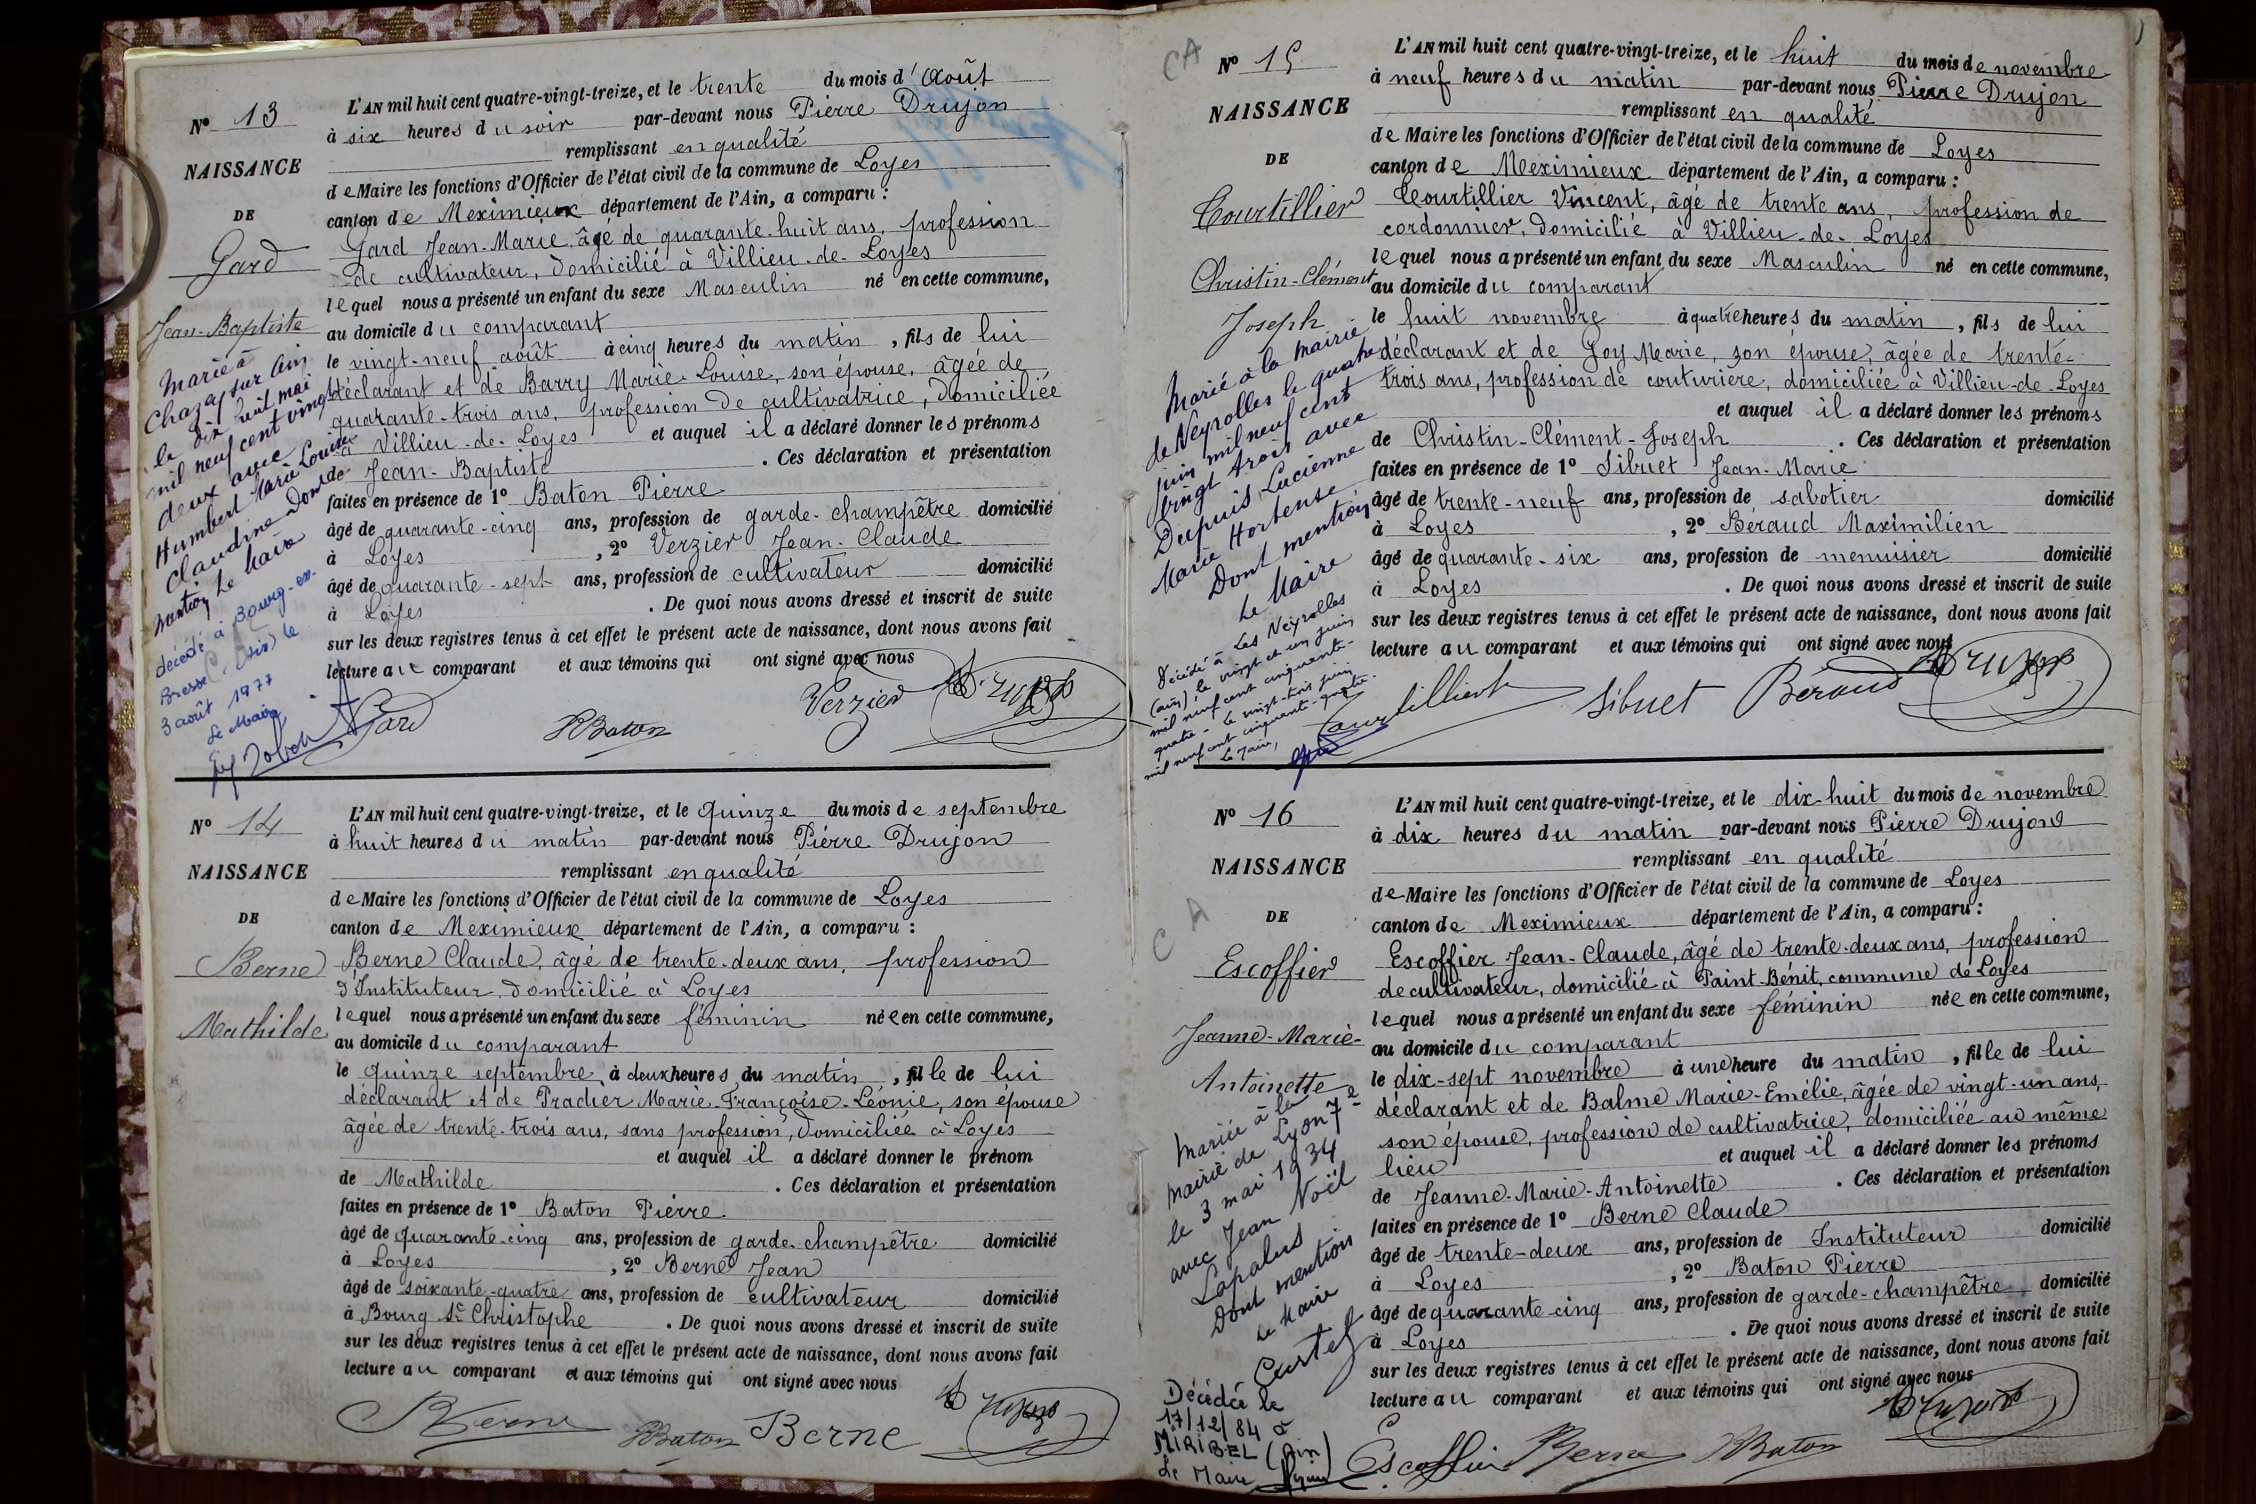 N° 13
NAISSANCE
DE
Gard
Jean-Baptiste
Marié à
Chazay sur Ain
le dix huit mai
mil neuf cent vingt
deux avec
Humbert Marie Louise
Claudine Dont
mention Le Maire
décédé à Bourg-en-
Bresse (Ain) le
3 août 1977
Le Maire
L'AN mil huit cent quatre-vingt-treize, et le trente du mois d'Août
à six heures du soir par-devant nous Pierre Drujon
remplissant en qualité
de Maire les fonctions d'Officier de l'état civil de la commune de Loyes
canton de Meximieux département de l'Ain, a comparu :
Gard Jean-Marie, âgé de quarante-huit ans, profession
de cultivateur, domicilié à Villieu-de-Loyes
lequel nous a présenté un enfant du sexe Masculin né en cette commune,
au domicile du comparant
le vingt-neuf août à cinq heures du matin, fils de lui
déclarant et de Barry Marie-Louise, son épouse, âgée de
quarante-trois ans, profession de cultivatrice, domiciliée
à Villieu-de-Loyes et auquel il a déclaré donner les prénoms
de Jean-Baptiste . Ces déclaration et présentation
faites en présence de 1° Baton Pierre
âgé de quarante-cinq ans, profession de garde-champêtre domicilié
à Loyes , 2° Verzier Jean-Claude
âgé de quarante-sept ans, profession de cultivateur domicilié
à Loyes . De quoi nous avons dressé et inscrit de suite
sur les deux registres tenus à cet effet le présent acte de naissance, dont nous avons fait
lecture au comparant et aux témoins qui ont signé avec nous
Gard PBaton Verzier Drujon
N° 14
NAISSANCE
DE
Berne
Mathilde
L'AN mil huit cent quatre-vingt-treize, et le quinze du mois de septembre
à huit heures du matin par-devant nous Pierre Drujon
remplissant en qualité
de Maire les fonctions d'Officier de l'état civil de la commune de Loyes
canton de Meximieux département de l'Ain, a comparu :
Berne Claude, âgé de trente-deux ans, profession
d'Instituteur, domicilié à Loyes
lequel nous a présenté un enfant du sexe féminin née en cette commune,
au domicile du comparant
le quinze septembre à deux heures du matin, fille de lui
déclarant et de Pradier Marie-Françoise-Léonie, son épouse
âgée de trente-trois ans, sans profession, domiciliée à Loyes
et auquel il a déclaré donner le prénom
de Mathilde . Ces déclaration et présentation
faites en présence de 1° Baton Pierre
âgé de quarante-cinq ans, profession de garde-champêtre domicilié
à Loyes , 2° Berne Jean
âgé de soixante-quatre ans, profession de cultivateur domicilié
à Bourg St Christophe . De quoi nous avons dressé et inscrit de suite
sur les deux registres tenus à cet effet le présent acte de naissance, dont nous avons fait
lecture au comparant et aux témoins qui ont signé avec nous
Berne PBaton Berne Drujon
CA
N° 15
NAISSANCE
DE
Courtillier
Christin-Clément
Joseph
Marié à la mairie
de Neyrolles le quatre
juin mil neuf cent
vingt trois avec
Dupuis Lucienne
Marie Hortense
Dont mention
Le Maire
Décédé à Les Neyrolles
(Ain) le vingt et un juin
mil neuf cent cinquante-
quatre - le vingt-trois juin
mil neuf cent cinquante-quatre.
Le Maire,
L'AN mil huit cent quatre-vingt-treize, et le huit du mois de novembre
à neuf heures du matin par-devant nous Pierre Drujon
remplissant en qualité
de Maire les fonctions d'Officier de l'état civil de la commune de Loyes
canton de Meximieux département de l'Ain, a comparu :
Courtillier Vincent, âgé de trente ans, profession de
cordonnier, domicilié à Villieu-de-Loyes
lequel nous a présenté un enfant du sexe Masculin né en cette commune,
au domicile du comparant
le huit novembre à quatre heures du matin, fils de lui
déclarant et de Goy Marie, son épouse, âgée de trente-
trois ans, profession de couturière, domiciliée à Villieu-de-Loyes
et auquel il a déclaré donner les prénoms
de Christin-Clément-Joseph . Ces déclaration et présentation
faites en présence de 1° Sibuet Jean-Marie
âgé de trente-neuf ans, profession de sabotier domicilié
à Loyes , 2° Béraud Maximilien
âgé de quarante-six ans, profession de menuisier domicilié
à Loyes . De quoi nous avons dressé et inscrit de suite
sur les deux registres tenus à cet effet le présent acte de naissance, dont nous avons fait
lecture au comparant et aux témoins qui ont signé avec nous
Courtillier Sibuet Béraud Drujon
CA
N° 16
NAISSANCE
DE
Escoffier
Jeanne-Marie-
Antoinette
Mariée à la
mairie de Lyon 7e
le 3 mai 1934
avec Jean Noël
Lapalus
Dont mention
Le Maire
Curtet
Décédée le
17/12/84 à
MIRIBEL (Ain)
Le Maire
L'AN mil huit cent quatre-vingt-treize, et le dix-huit du mois de novembre
à dix heures du matin par-devant nous Pierre Drujon
remplissant en qualité
de Maire les fonctions d'Officier de l'état civil de la commune de Loyes
canton de Meximieux département de l'Ain, a comparu :
Escoffier Jean-Claude, âgé de trente-deux ans, profession
de cultivateur, domicilié à Saint-Bénit, commune de Loyes
lequel nous a présenté un enfant du sexe féminin née en cette commune,
au domicile du comparant
le dix-sept novembre à une heure du matin, fille de lui
déclarant et de Balme Marie-Emélie, âgée de vingt-un ans,
son épouse, profession de cultivatrice, domiciliée au même
lieu et auquel il a déclaré donner les prénoms
de Jeanne-Marie-Antoinette . Ces déclaration et présentation
faites en présence de 1° Berne Claude
âgé de trente-deux ans, profession de Instituteur domicilié
à Loyes , 2° Baton Pierre
âgé de quarante-cinq ans, profession de garde-champêtre domicilié
à Loyes . De quoi nous avons dressé et inscrit de suite
sur les deux registres tenus à cet effet le présent acte de naissance, dont nous avons fait
lecture au comparant et aux témoins qui ont signé avec nous
Escoffier Berne PBaton Drujon